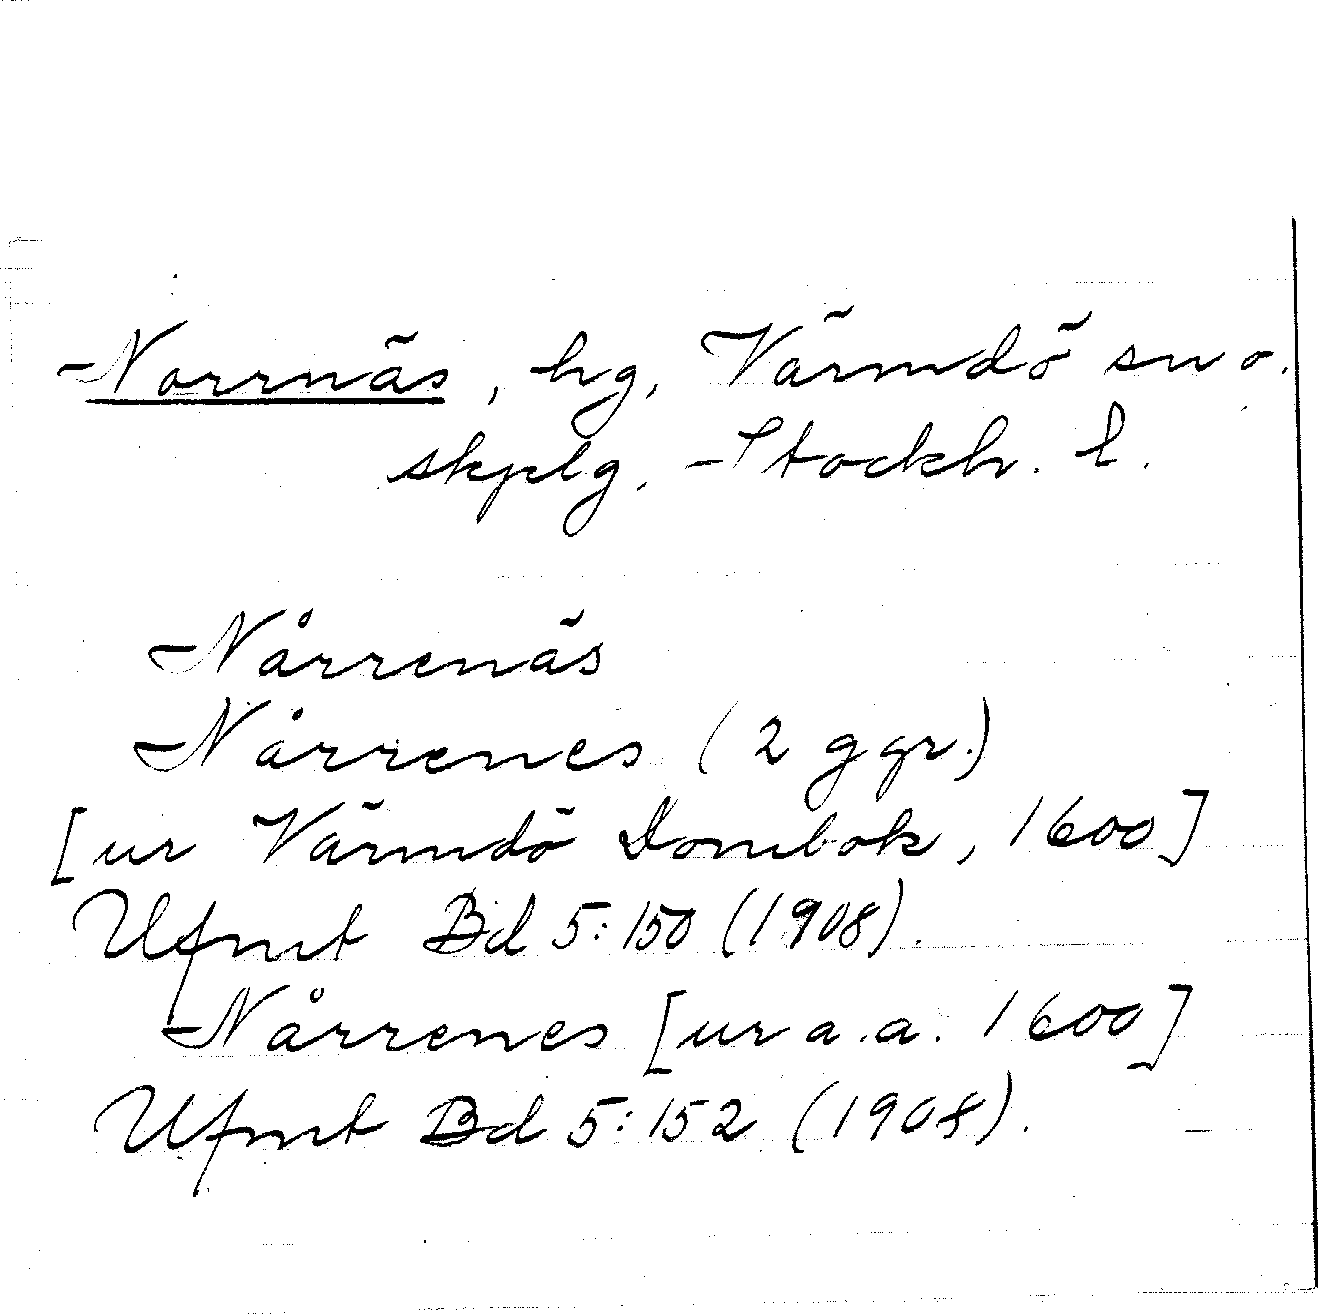 Norrnäs, hg, Värmdö sn o.
skplg, Stockh. l.
Nårrenäs
Nårrenes (2 ggr.)
[ur Värmdö Dombok, 1600]
Ufmt Bd 5:150 (1908).
Nårrenes [ur a.a. 1600]
Ufmt Bd 5:152 (1908).